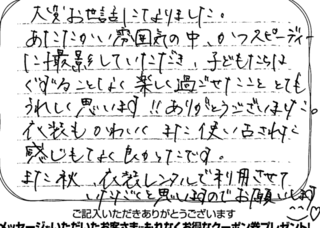 大変お世話になりました。
あたたかい雰囲気の中、かつスピーディー
に撮影していただき、子どもたちは
ぐずることなく楽しく過ごせたこと とても
うれしく思います!!ありがとうございました。
衣装もかわいく、まだ使い古された
感じもなく良かったです。
また秋、衣装レンタルで利用させて
いただくと思いますのでお願いします
ご記入いただきありがとうございます
メッセージいただいたお客さまもれなくお得なクーポン券プレゼント!